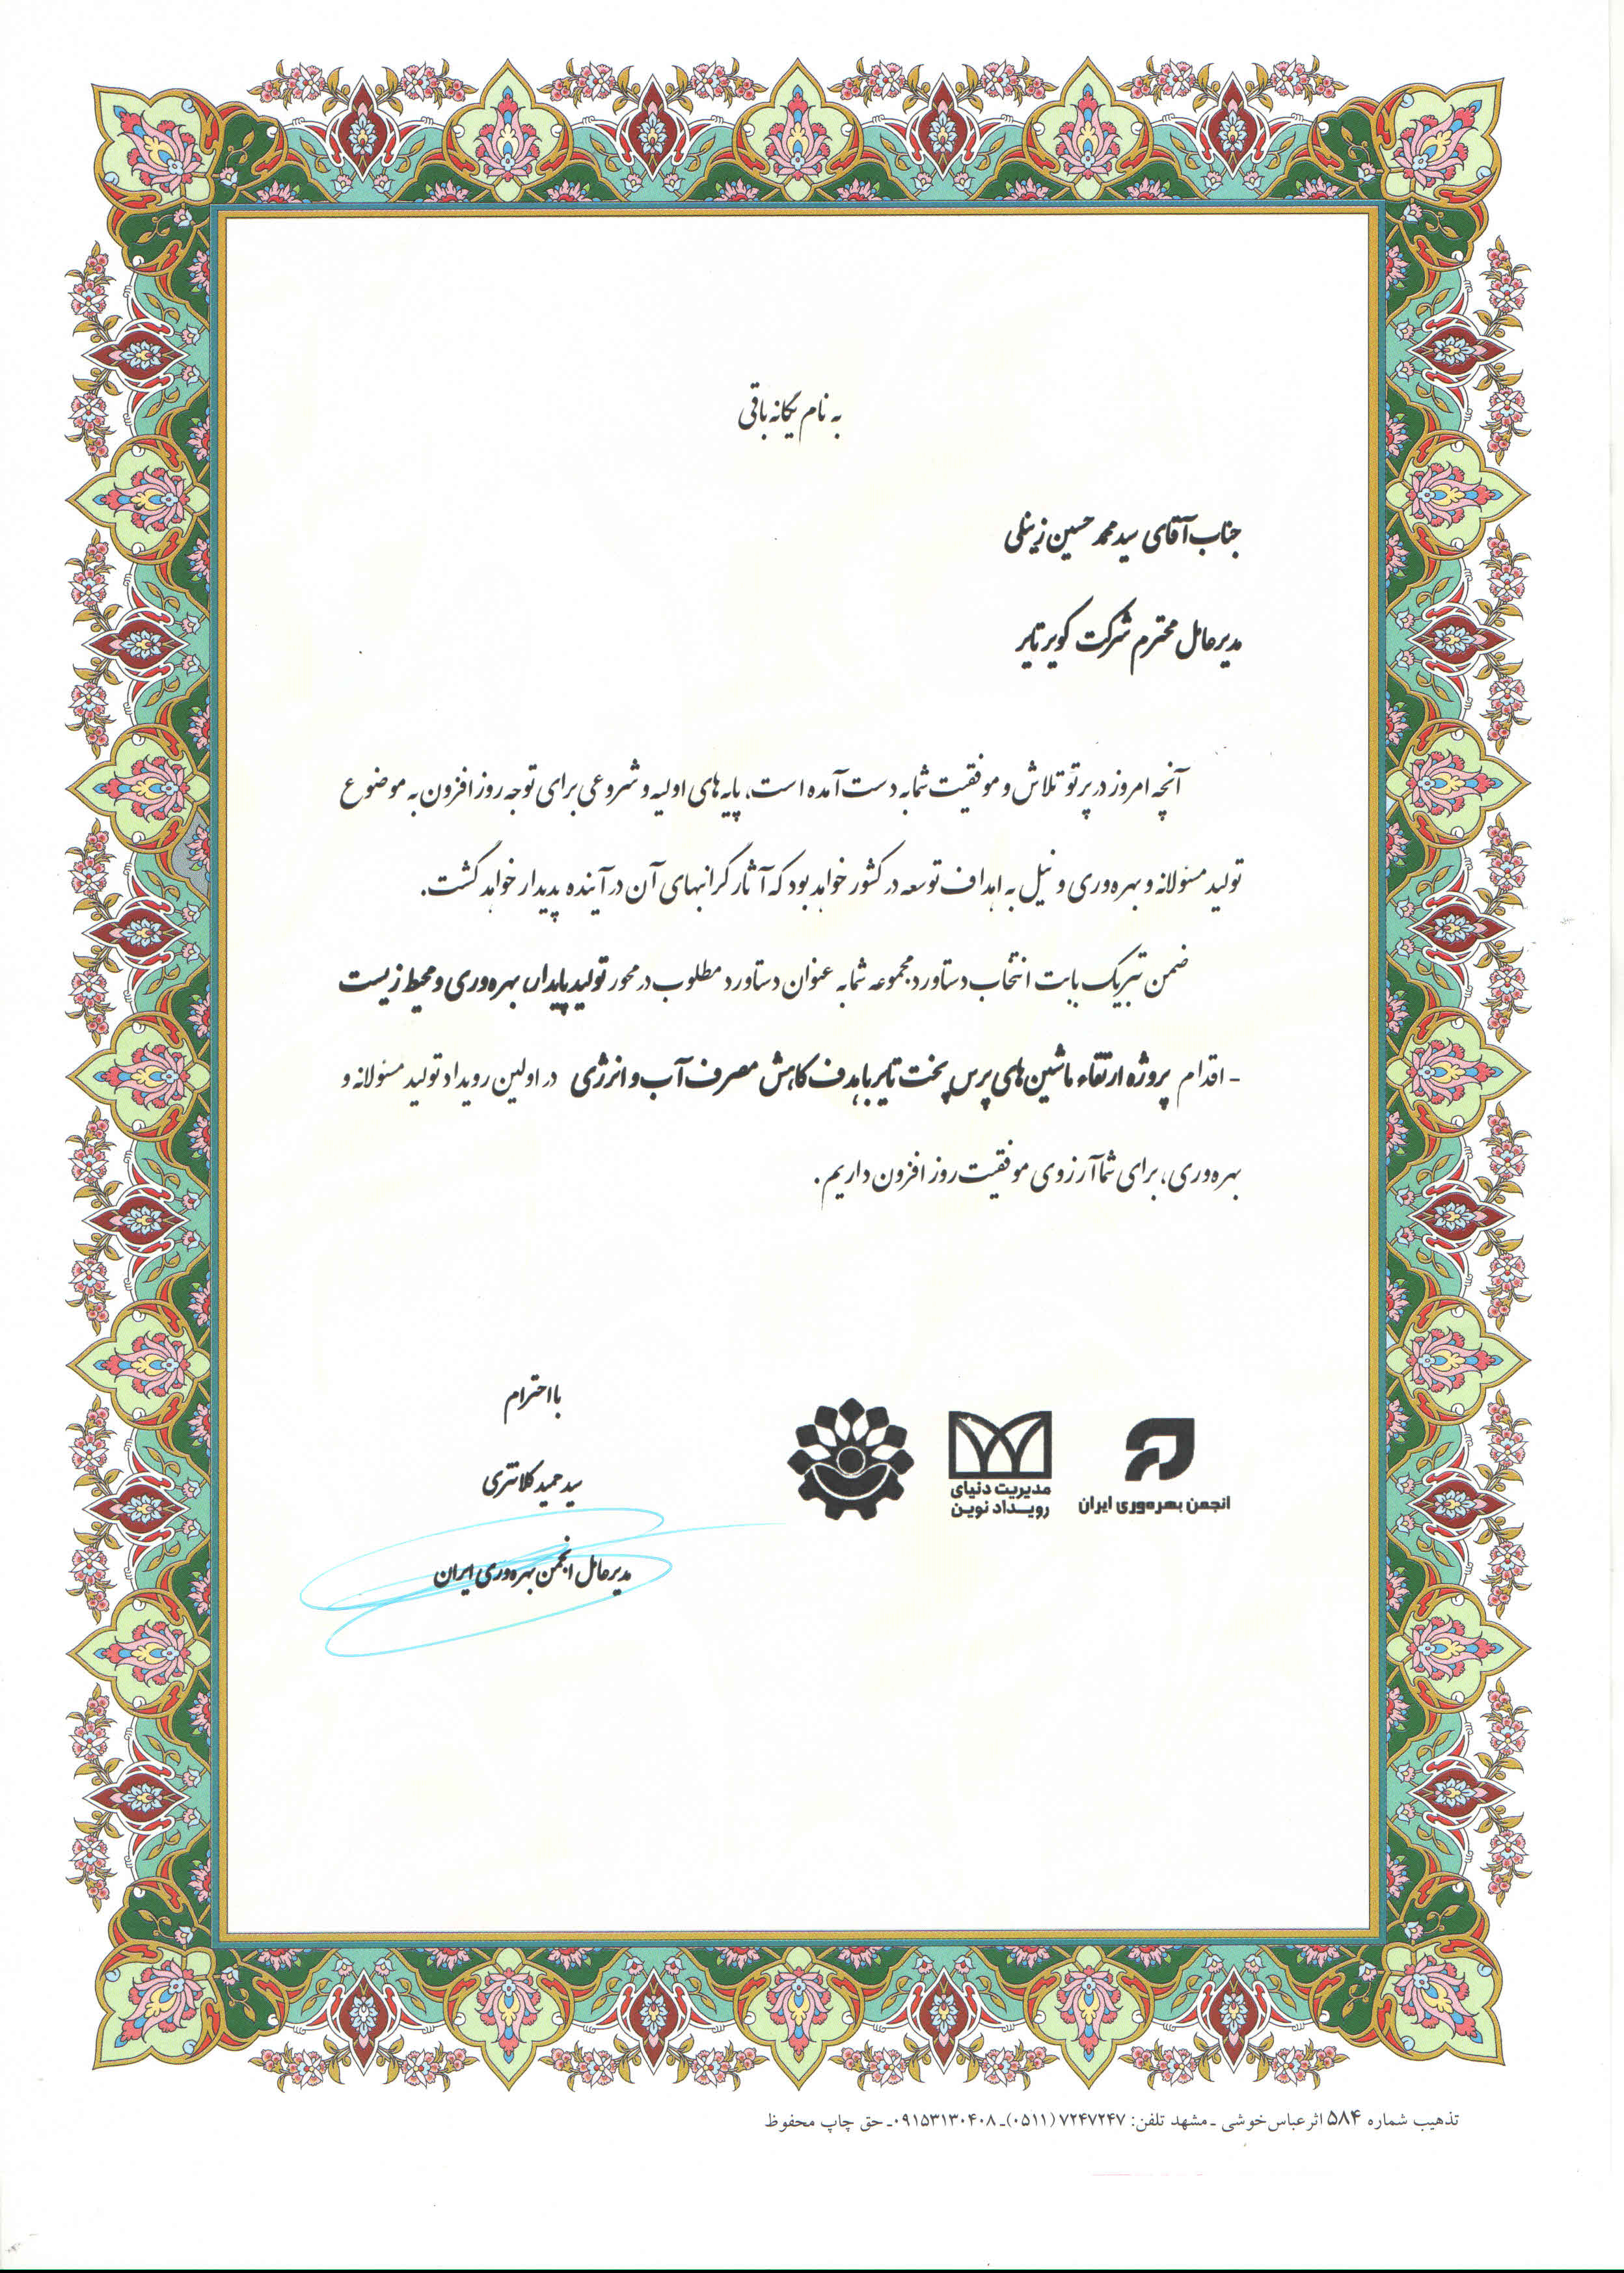 به نام یگانه باقی
جناب آقای سید محمد حسین زینلی
مدیرعامل محترم شرکت کویر تایر
آنچه امروز در پرتو تلاش و موفقیت شما به دست آمده است، پایه های اولیه و شروعی برای توجه روز افزون به موضوع
تولید مسئولانه و بهره‌وری و نیل به اهداف توسعه در کشور خواهد بود که آثار گرانبهای آن در آینده پدیدار خواهد گشت.
ضمن تبریک بابت انتخاب دستاورد مجموعه شما به عنوان دستاورد مطلوب در محور تولید پایدار، بهره‌وری و محیط زیست
- اقدام پروژه ارتقاء ماشین های پرس پخت تایر با هدف کاهش مصرف آب و انرژی در اولین رویداد تولید مسئولانه و
بهره‌وری، برای شما آرزوی موفقیت روز افزون داریم.
با احترام
سید حمید کلانتری
مدیرعامل انجمن بهره‌وری ایران
انجمن بهره‌وری ایران
مدیریت دنیای
رویداد نوین
تذهیب شماره ۵۸۴ اثر عباس خوشی ـ مشهد تلفن: ۷۲۴۷۲۴۷ (۰۵۱۱)ـ ۰۹۱۵۳۱۳۰۴۰۸ـ حق چاپ محفوظ